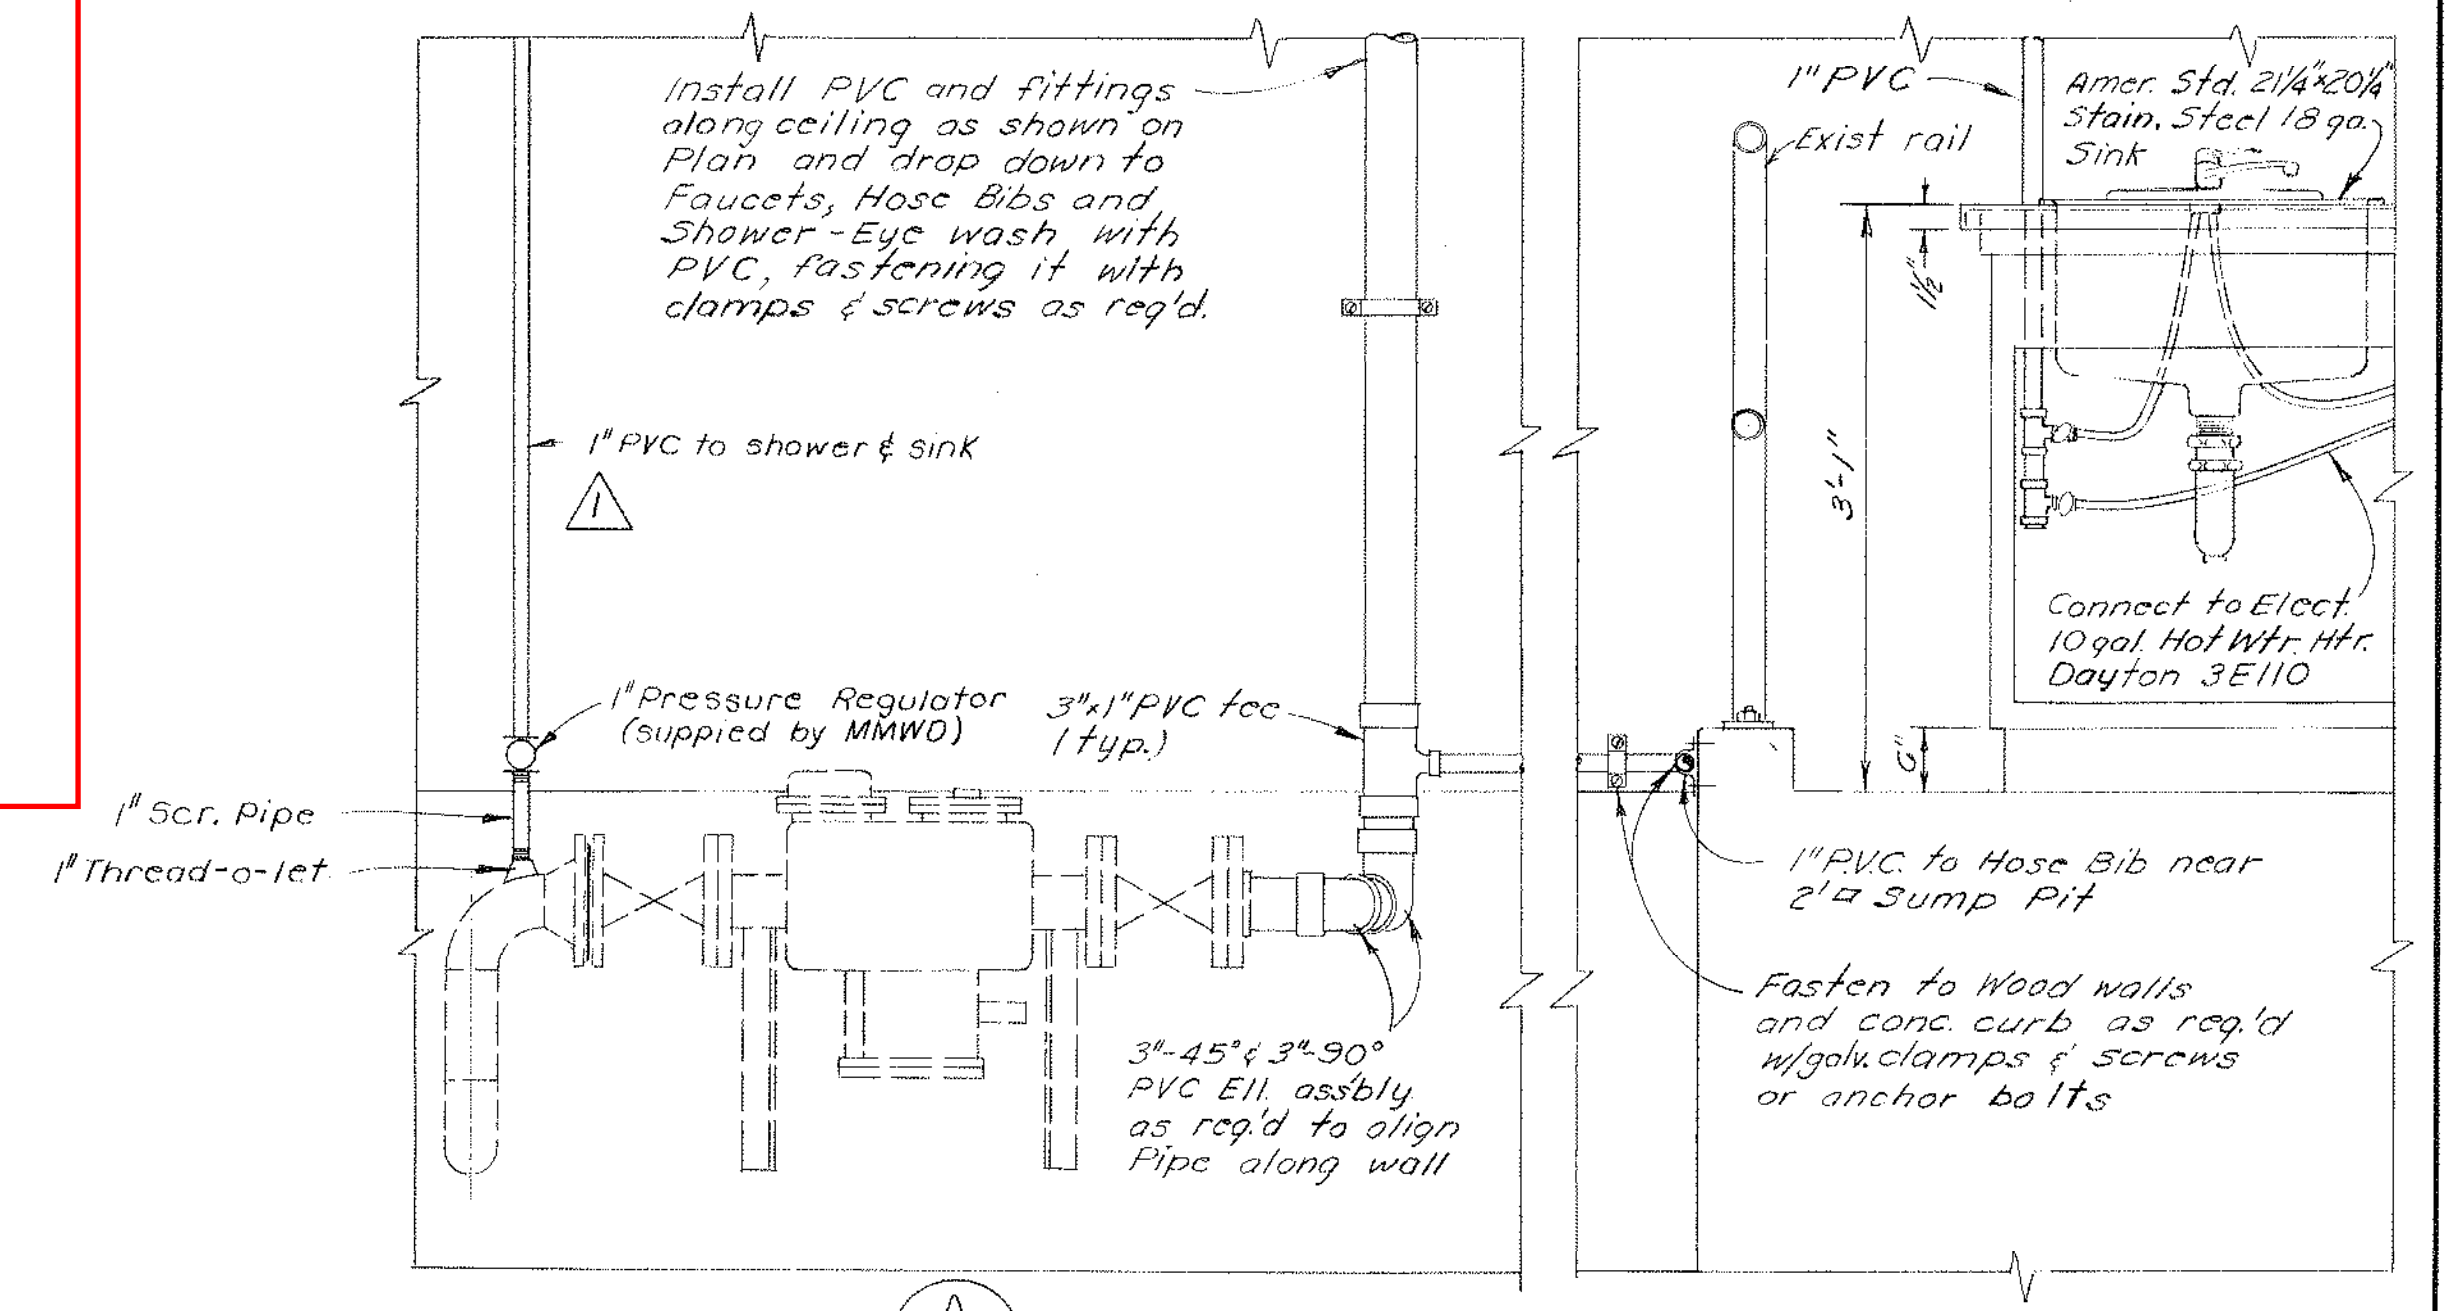 Install PVC and fittings
along ceiling as shown on
Plan and drop down to
Faucets, Hose Bibs and
Shower-Eye wash with
PVC, fastening it with
clamps & screws as req'd.
1" PVC to shower & sink
1
1" Pressure Regulator
(suppied by MMWD)
3"x1" PVC tee
(typ.)
1" Scr. Pipe
1" Thread-o-let
3"-45° & 3"-90°
PVC Ell. ass'bly
as req.'d to align
Pipe along wall
A
1" PVC
Exist rail
Amer. Std. 21¼"x20¼"
Stain. Steel 18 ga.
Sink
1½"
3'-1"
6"
Connect to Elect.
10 gal. Hot Wtr. Htr.
Dayton 3E110
1" P.V.C. to Hose Bib near
2'⌷ Sump Pit
Fasten to Wood walls
and conc. curb as req.'d
w/galv. clamps & screws
or anchor bolts